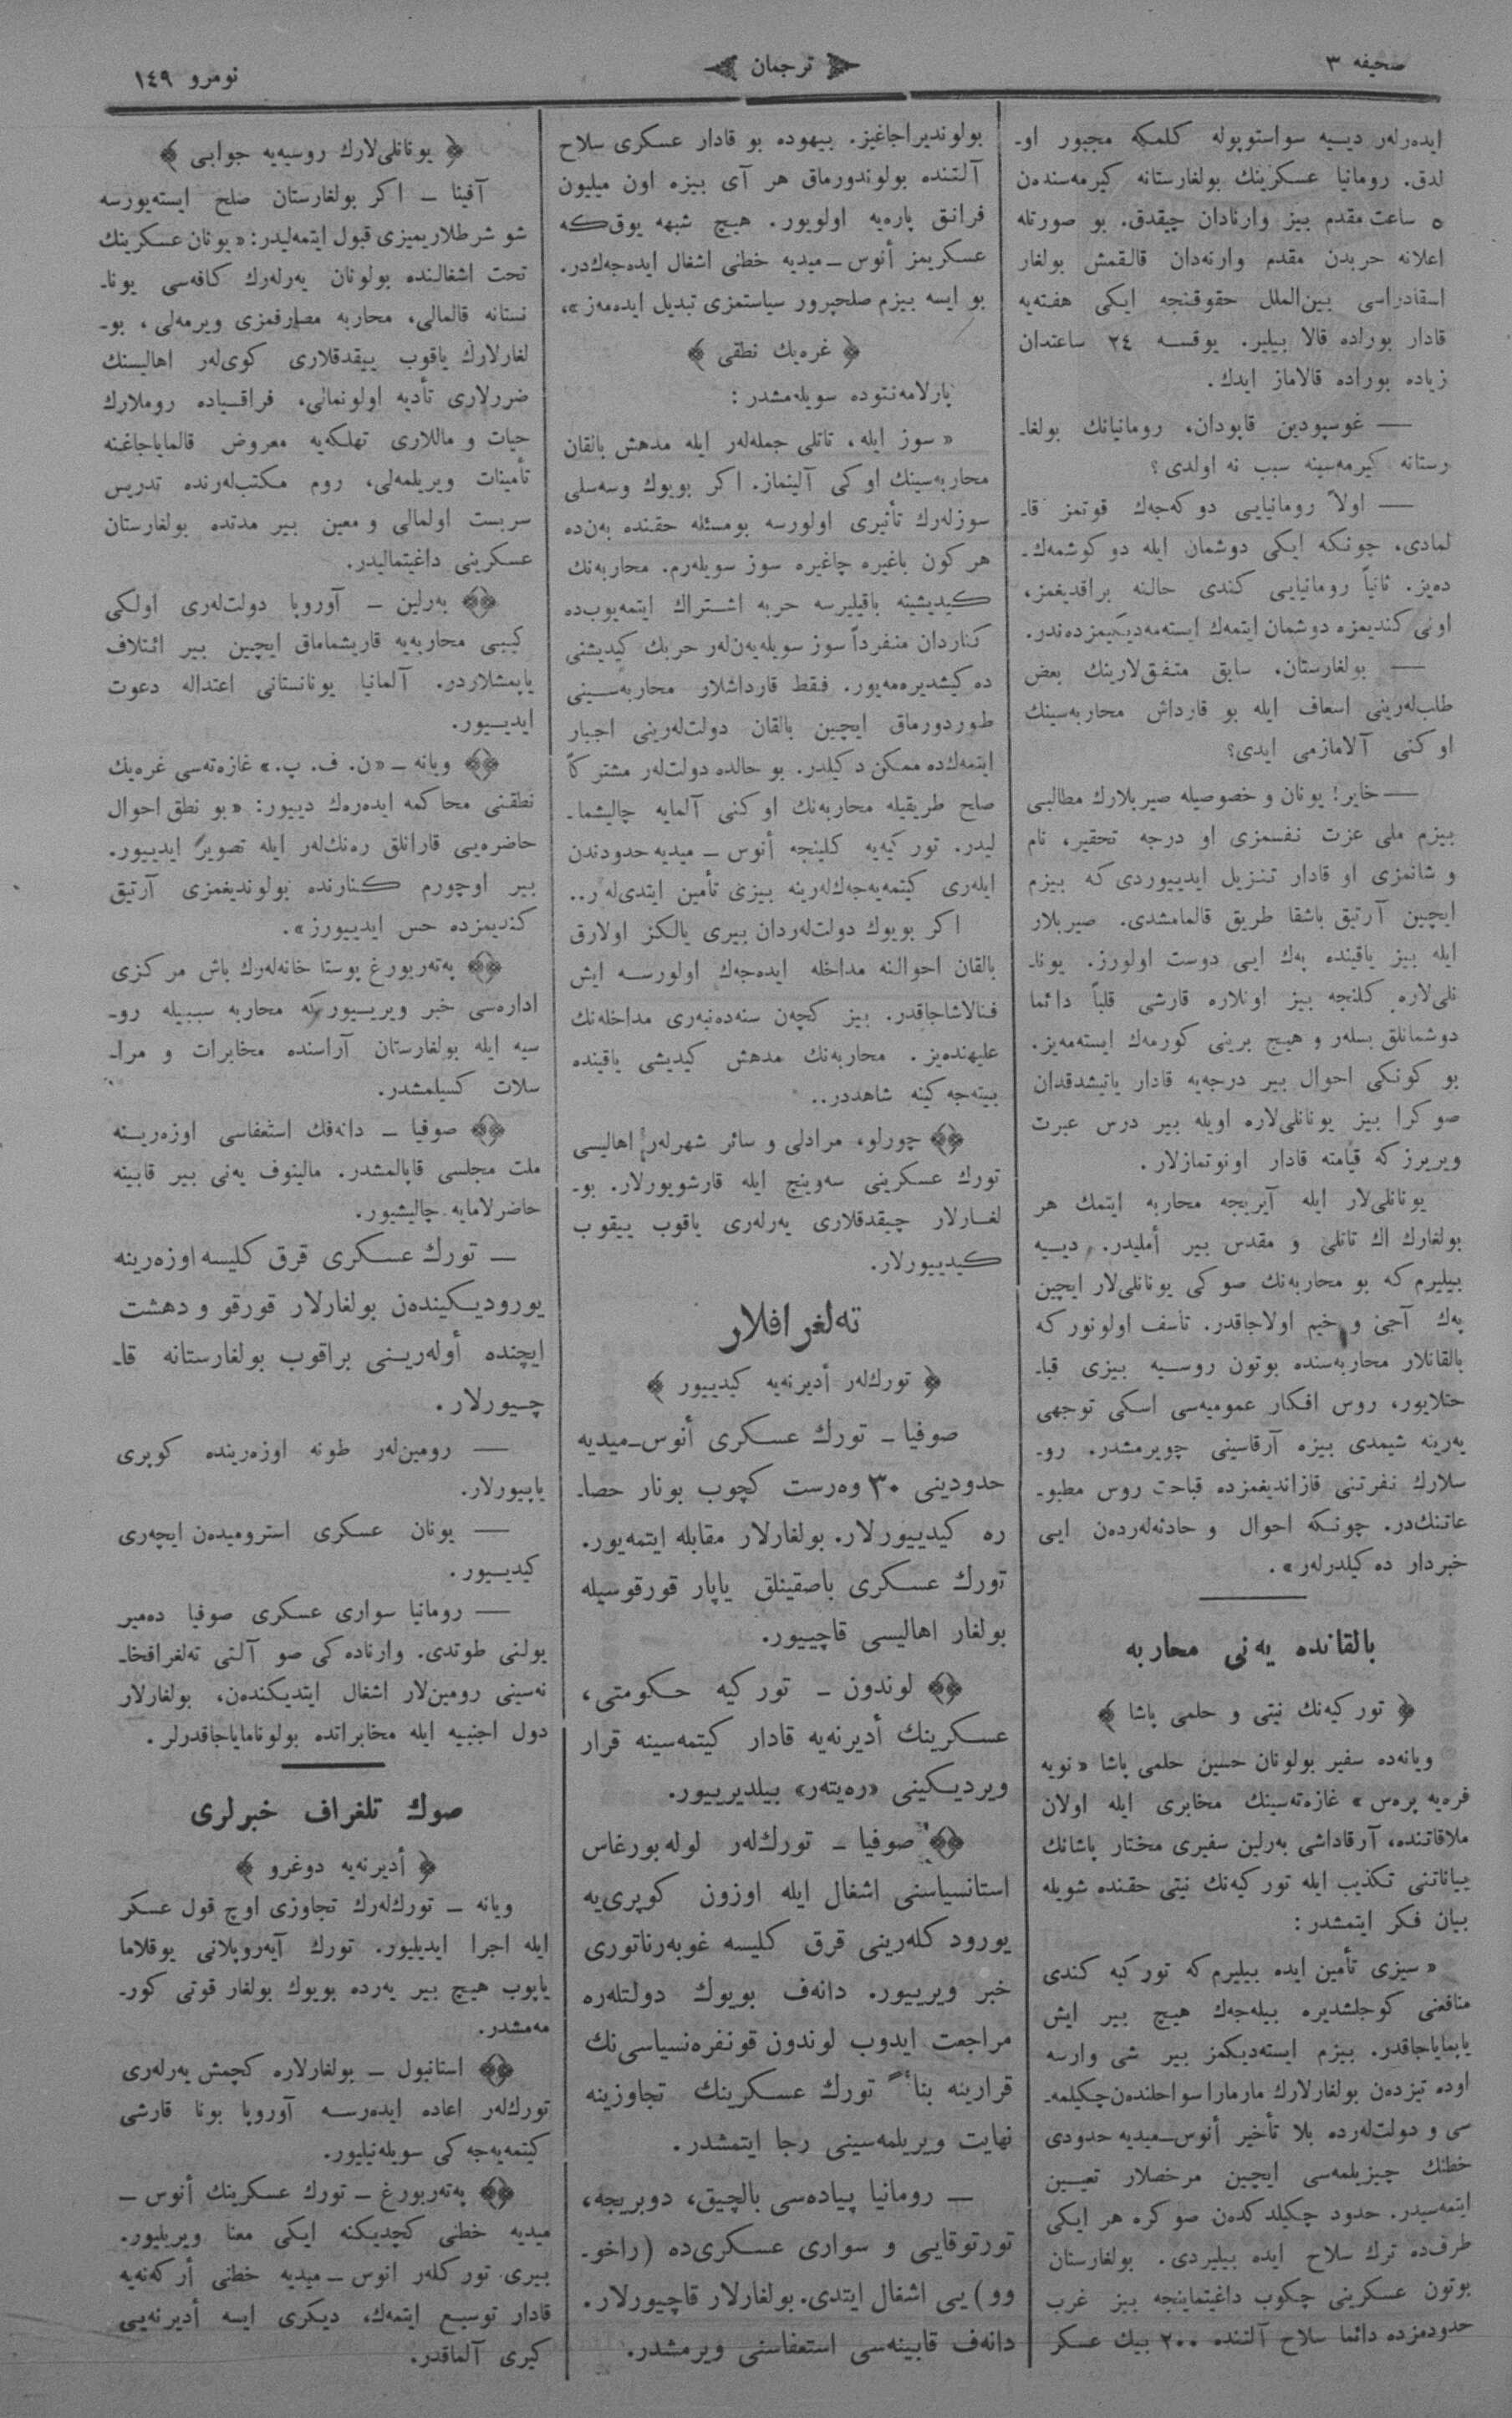 صحيفه ٣
ترجمان
نومرو ١٤٩
ايدەرلەر دييه سواستوپوله كلمكه مجبور او-
لدق. رومانيا عسكرينك بولغارستانه كيرمەسندەن
٥ ساعت مقدم بيز وارنادان چيقدق. بو صورتله
اعلانه حربدن مقدم وارنەدان قالقمش بولغار
اسقادراسى بين‌الملل حقوقنجه ايكى هفتەيه
قادار بوراده قالا بيلير. يوقسه ٢٤ ساعتدان
زياده بوراده قالاماز ايدك.
— غوسپودين قاپودان، رومانيانك بولغا-
رستانه كيرمەسينه سبب نه اولدى؟
— اولاً رومانيايى دوكەجەك قوتمز قا-
لمادى، چونكه ايكى دوشمان ايله دوكوشمەك-
دەيز. ثانياً رومانيايى كندى حالنه براقديغمز،
اونى كنديمزه دوشمان ايتمەك ايستەمەديكيمزدەندر.
— بولغارستان. سابق متفق‌لارينك بعض
طلب‌لەرينى اسعاف ايله بو قارداش محاربەسينك
اوكنى آلامازمى ايدى؟
— خاير! يونان و خصوصيله صيربلارك مطالبى
بيزم ملى عزت نفسمزى او درجه تحقير، نام
و شانمزى او قادار تنزيل ايدييوردى كه بيزم
ايچين آرتيق باشقا طريق قالمامشدى. صيربلار
ايله بيز ياقينده پەك ايى دوست اولورز. يونا-
نلى‌لاره كلنجه بيز اونلاره قارشى قلباً دائما
دوشمانلق بسلەر و هيچ برينى كورمەك ايستەمەيز.
بو كونكى احوال بير درجەيه قادار ياتيشدقدان
صوكرا بيز يونانلى‌لاره اويله بير درس عبرت
ويريرز كه قيامته قادار اونوتمازلار.
يونانلى‌لار ايله آيريجه محاربه ايتمك هر
بولغارك اك تاتلى و مقدس بير أمليدر. دييه
بيليرم كه بو محاربەنك صوكى يونانلى‌لار ايچين
پەك آجى و خيم اولاجاقدر. تاسف اولونور كه
بالقانلار محاربەسنده بوتون روسيه بيزى قبا-
حتلايور، روس افكار عموميەسى اسكى توجهى
يەرينه شيمدى بيزه آرقاسينى چويرمشدر. رو-
سلارك نفرتنى قازانديغمزده قباحت روس مطبو-
عاتنك‌در. چونكه احوال و حادثەلەردەن ايى
خبردار دەكيلدرلەر».
بالقانده يەنى محاربه
﴿ توركيەنك نيتى و حلمى پاشا ﴾
ويانەده سفير بولونان حسين حلمى پاشا «نويه
فرەيه پرەس» غازەتەسينك مخابرى ايله اولان
ملاقاتنده، آرقاداشى بەرلين سفيرى مختار پاشانك
بياناتنى تكذيب ايله توركيەنك نيتى حقنده شويله
بيان فكر ايتمشدر:
«سيزى تأمين ايده بيليرم كه توركيه كندى
منافعنى كوجلشديره بيلەجەك هيچ بير ايش
ياپماياجاقدر. بيزم ايستەديكمز بير شى وارسه
اوده تيزدەن بولغارلارك مارمارا سواحلندەن چكيلمه-
سى و دولت‌لەرده بلا تأخير أنوس-ميديه حدودى
خطنك چيزيلمەسى ايچين مرخصلار تعيين
ايتمەسيدر. حدود چكيلدكدەن صوكره هر ايكى
طرف‌ده ترك سلاح ايده بيليردى. بولغارستان
بوتون عسكرينى چكوب داغيتماينجه بيز غرب
حدودمزده دائما سلاح آلتنده ٢٠٠ بيك عسكر
بولونديراجاغيز. بيهوده بو قادار عسكرى سلاح
آلتنده بولوندورماق هر آى بيزه اون ميليون
فرانق پارەيه اولويور. هيچ شبهه يوق‌كه
عسكريمز أنوس-ميديه خطنى اشغال ايدەجەك‌در.
بو ايسه بيزم صلحپرور سياستمزى تبديل ايدەمەز»،
﴿ غرەيك نطقى ﴾
پارلامەنتوده سويلەمشدر:
«سوز ايله، تاتلى جملەلەر ايله مدهش بالقان
محاربەسينك اوكى آلينماز. اكر بويوك و‌سەسلى
سوزلەرك تأثيرى اولورسه بومسئله حقنده بەن‌ده
هر كون باغيره چاغيره سوز سويلەرم. محاربەنك
كيديشينه باقيليرسه حربه اشتراك ايتمەيوب‌ده
كناردان منفرداً سوز سويلەيەن‌لەر حربك كيديشنى
دەكيشديرەمەيور. فقط قارداشلار محاربەسينى
طوردورماق ايچين بالقان دولت‌لەرينى اجبار
ايتمەك‌ده ممكن دكيلدر. بو حالده دولت‌لەر مشتركاً
صلح طريقيله محاربەنك اوكنى آلمايه چاليشما-
ليدر. توركيەيه كلينجه أنوس - ميديه حدودندن
ايلەرى كيتمەيەجەك‌لەرينه بيزى تأمين ايتدى‌لەر..
اكر بويوك دولت‌لەردان بيرى يالكز اولارق
بالقان احوالنه مداخله ايدەجەك اولورسه ايش
فنالاشاجاقدر. بيز كچەن سنەدەنبەرى مداخلەنك
عليهندەيز. محاربەنك مدهش كيديشى ياقينده
بيتەجەكينه شاهددر..
چورلو، مرادلى و سائر شهرلەر اهاليسى
تورك عسكرينى سەوينچ ايله قارشويورلار. بو-
لغارلار چيقدقلارى يەرلەرى ياقوب ييقوب
كيدييورلار.
تەلغرافلار
﴿ تورك‌لەر أديرنەيه كيدييور ﴾
صوفيا - تورك عسكرى أنوس-ميديه
حدودينى ٣٠ وەرست كچوب بونار حصا-
ره كيدييورلار. بولغارلار مقابله ايتمەيور.
تورك عسكرى باصقينلق ياپار قورقوسيله
بولغار اهاليسى قاچييور.
لوندون - توركيه حكومتى،
عسكرينك أديرنەيه قادار كيتمەسينه قرار
ويرديكينى «رەيتەر» بيلديرييور.
صوفيا - تورك‌لەر لوله‌بورغاس
استانسياسنى اشغال ايله اوزون كوپرى‌يه
يورودكلەرينى قرق كليسه غوبەرناتورى
خبر ويرييور. دانەف بويوك دولتلەره
مراجعت ايدوب لوندون قونفرەنسياسى‌نك
قرارينه بناً تورك عسكرينك تجاوزينه
نهايت ويريلمەسينى رجا ايتمشدر.
— رومانيا پيادەسى بالچيق، دوبريجه،
تورتوقايى و سوارى عسكرى‌ده (راخو-
وو) يى اشغال ايتدى. بولغارلار قاچيورلار.
دانەف قابينەسى استعفاسنى ويرمشدر.
﴿ يونانلى‌لارك روسيەيه جوابى ﴾
آفينا - اكر بولغارستان صلح ايستەيورسه
شو شرطلاريميزى قبول ايتمەليدر: «يونان عسكرينك
تحت اشغالنده بولونان يەرلەرك كافەسى يونا-
نستانه قالمالى، محاربه مصارفمزى ويرمەلى، بو-
لغارلارك ياقوب ييقدقلارى كوى‌لەر اهاليسنك
ضررلارى تأديه اولونمالى، فراقياده روملارك
حيات و ماللارى تهلكەيه معروض قالماياجاغنه
تأمينات ويريلمەلى، روم مكتب‌لەرنده تدريس
سربست اولمالى و معين بير مدتده بولغارستان
عسكرينى داغيتماليدر.
بەرلين - آوروپا دولت‌لەرى اولكى
كيبى محاربەيه قاريشماماق ايچين بير ائتلاف
ياپمشلاردر. آلمانيا يونانستانى اعتداله دعوت
ايدييور.
ويانه - «ن. ف. پ.» غازەتەسى غرەيك
نطقنى محاكمه ايدەرەك دييور: «بو نطق احوال
حاضرەيى قارانلق رەنك‌لەر ايله تصوير ايدييور.
بير اوچورم كنارنده بولونديغمزى آرتيق
كنديمزده حس ايدييورز».
پەتەربورغ پوستا خانەلەرك باش مركزى
ادارەسى خبر ويرييور كه محاربه سببيله رو-
سيه ايله بولغارستان آراسنده مخابرات و مرا-
سلات كسيلمشدر.
صوفيا - دانەفك استعفاسى اوزەرينه
ملت مجلسى قاپالمشدر. مالينوف يەنى بير قابينه
حاضرلامايه چاليشيور.
— تورك عسكرى قرق كليسه اوزەرينه
يوروديكيندەن بولغارلار قورقو و دهشت
ايچنده أولەرينى براقوب بولغارستانه قا-
چيورلار.
— رومين‌لەر طونه اوزەرينده كوپرى
ياپيورلار.
— يونان عسكرى استروميدەن ايچەرى
كيدييور.
— رومانيا سوارى عسكرى صوفيا دەمير
يولنى طوتدى. وارنادەكى صو آلتى تەلغرافخا-
نەسينى رومين‌لار اشغال ايتديكندەن، بولغارلار
دول اجنبيه ايله مخابراتده بولوناماياجاقدرلر.
صوك تلغراف خبرلرى
﴿ أديرنەيه دوغرو ﴾
ويانه - تورك‌لەرك تجاوزى اوچ قول عسكر
ايله اجرا ايديليور. تورك آيەروپلانى يوقلاما
ياپوب هيچ بير يەرده بويوك بولغار قوتى كور-
مەمشدر.
استانبول - بولغارلاره كچمش يەرلەرى
تورك‌لەر اعاده ايدەرسه آوروپا بونا قارشى
كيتمەيەجەكى سويلەنيليور.
پەتەربورغ - تورك عسكرينك أنوس -
ميديه خطنى كچديكنه ايكى معنا ويريليور.
بيرى توركلەر انوس - ميديه خطنى أركەنەيه
قادار توسيع ايتمەك، ديكرى ايسه أديرنەيى
كيرى آلماقدر.